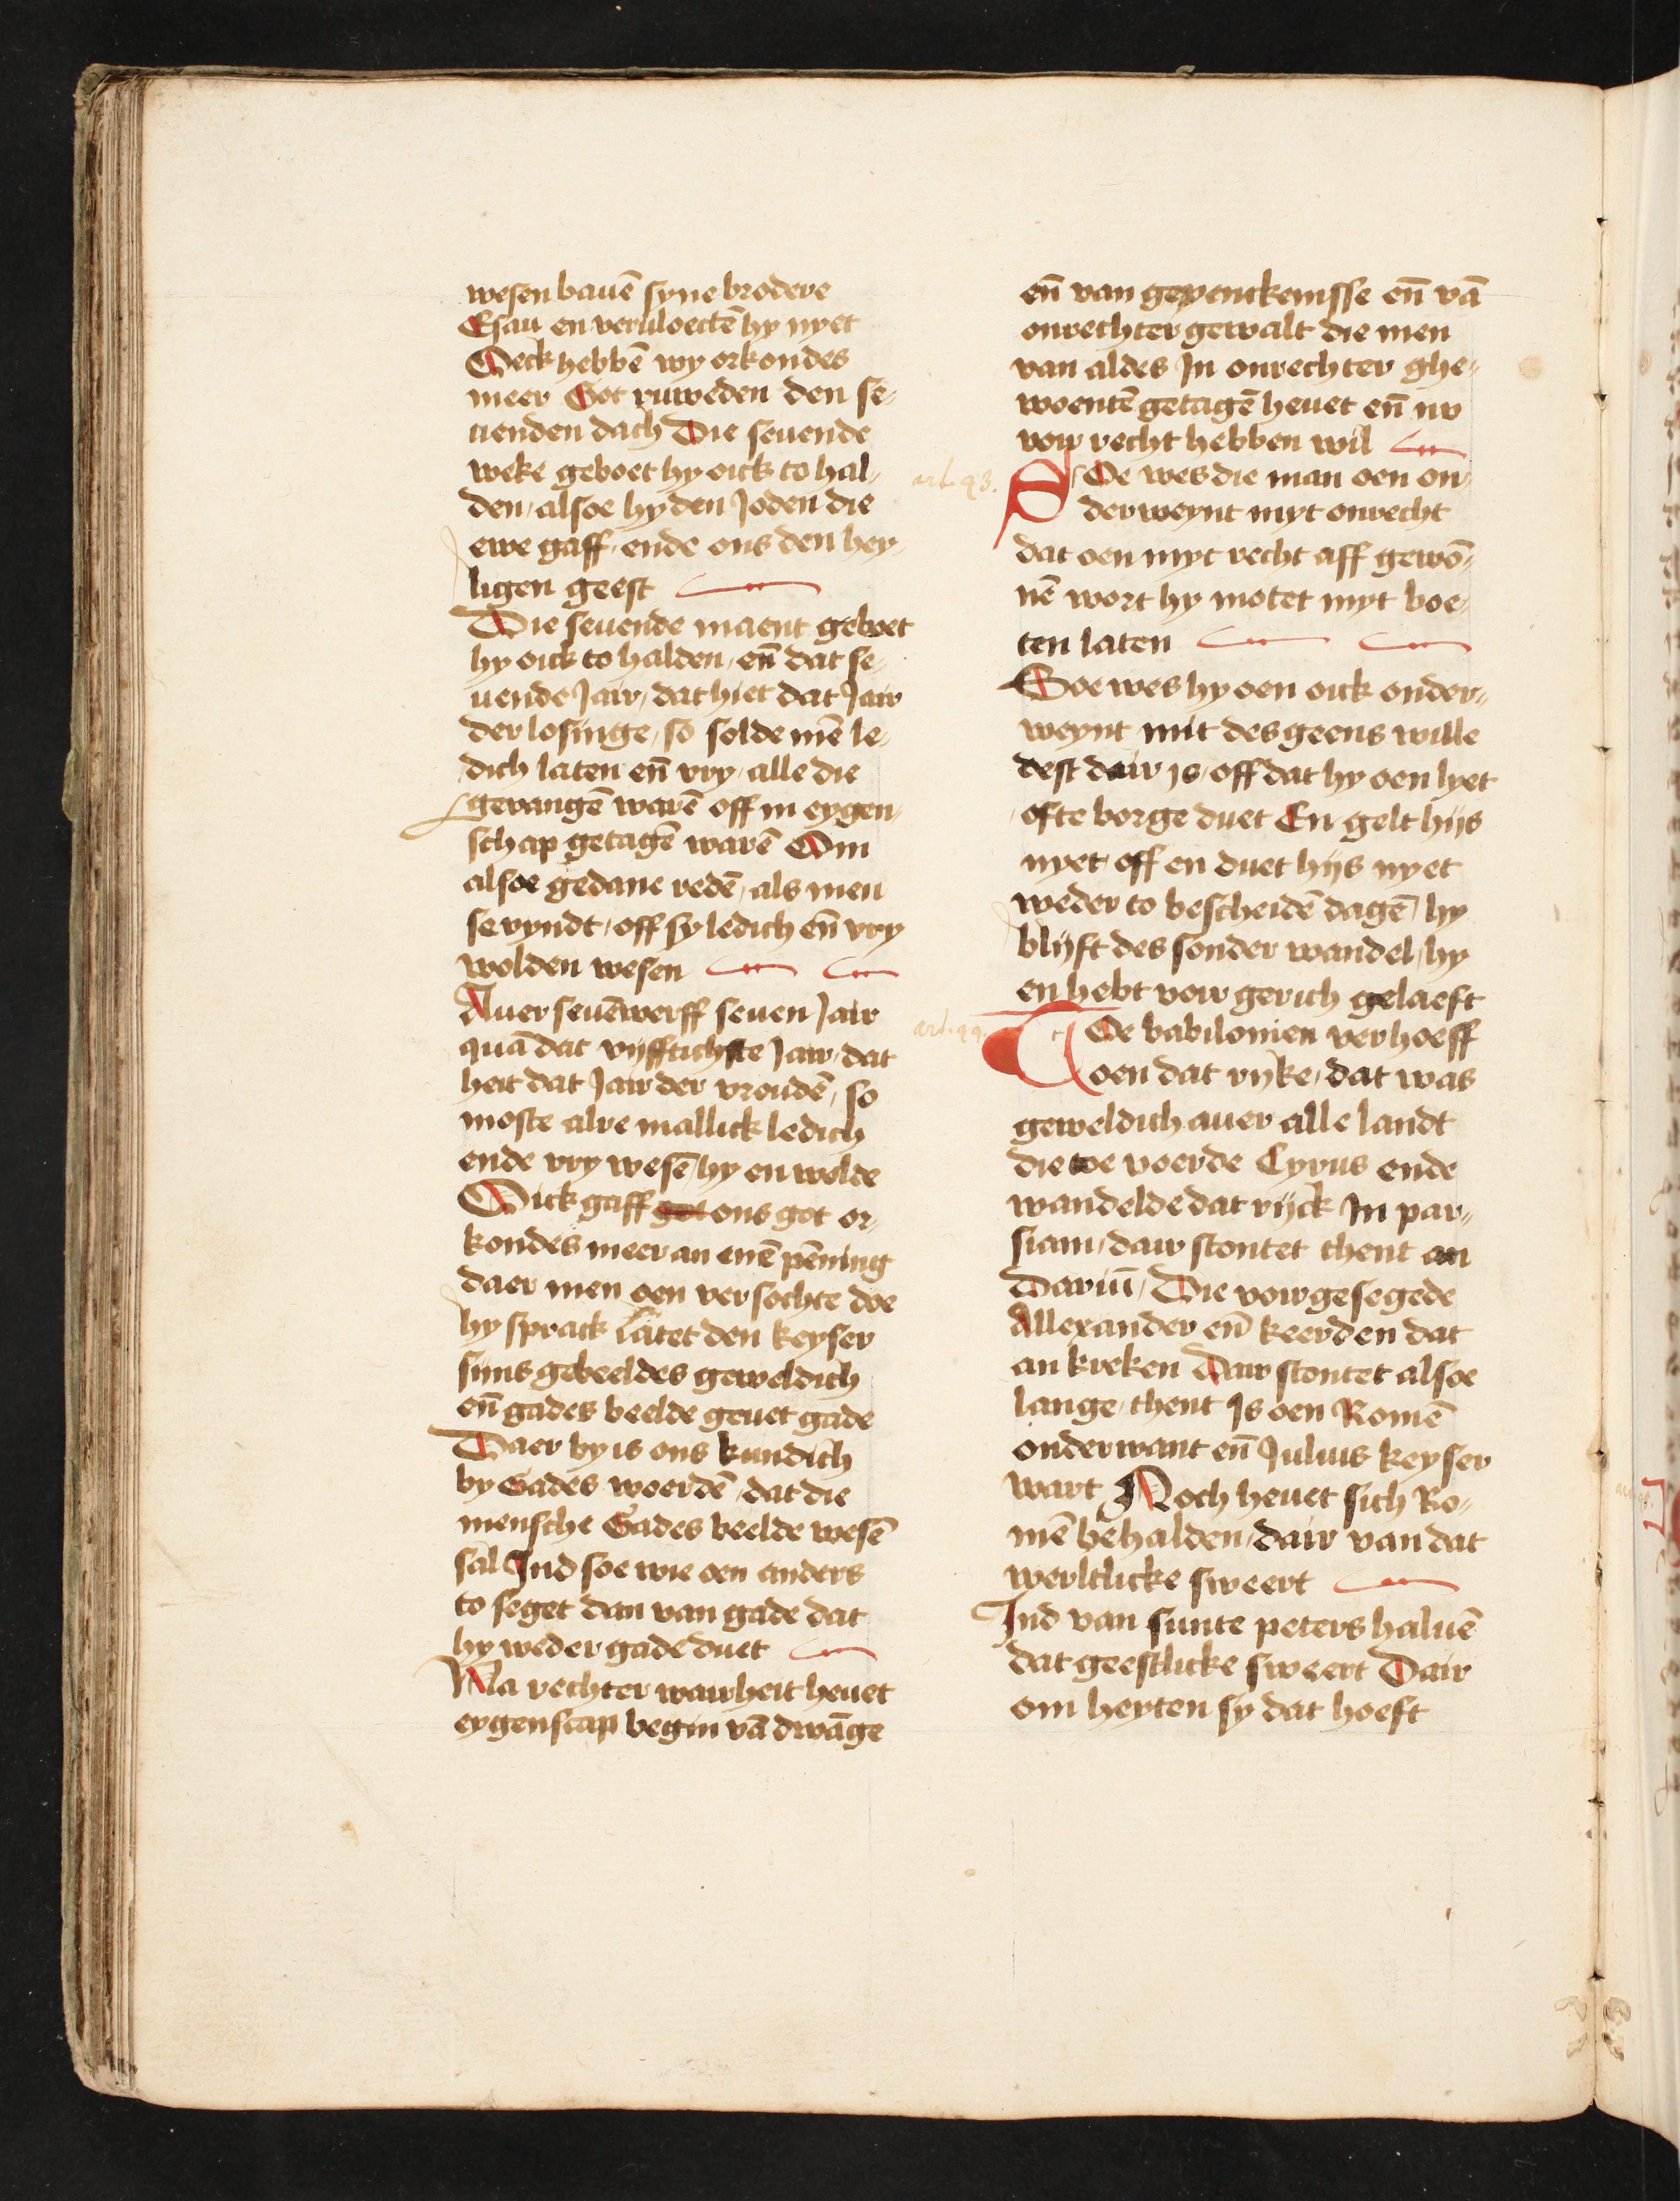 wesen bauē syne brodere
Esau en veruloectē hy nyet
Oeck hebbē wy orkondes
meer Got ruweden den se⸗
uenden dach Die seuende
weke geboet hy oick to hal⸗
den / alsoe hy den Joden die
ewe gaff / ende ons den hey⸗
ligen geest
Die seuende maent geboet
hy oick to halden / en̄ dat se⸗
uende Jair / dat hiet dat Jair
der losinge / so solde mē le⸗
dich laten en̄ vry / alle die
geuangē warē off in eygen⸗
schap getagē warē Om
alsoe gedane redē / als men
se vyndt / off sy ledich en̄ vry
wolden wesen
Auer seuēwerff seuen Jair
quā dat vijfftichste Jair / dat
heit dat Jair der vroudē / so
moste alre mallick ledich
ende vry wesē / hy en wolde
Oick gaff got ons got or⸗
kondes meer an enē pēning
daer men oen versochte doe
hy sprack Latet den keyser
sijns gebeeldes geweldich
en̄ gades beelde geuet gade
Daer by is ons kundich
by Gades woerdē / dat die
mensche Gades beelde wesē
sal Ind soe wie oen anders
to seget dan van gade dat
hy weder gade duet
Na rechter wairheit heuet
eygenscap begin vā dwāge
en̄ van geuenckenisse en̄ vā
onrechter gewalt die men
van aldes In onrechter ghe⸗
woentē getagē heuet en̄ nv
voir recht hebben wil
art. 43.
SOe wes die man oen on⸗
derweynt myt onrecht
dat oen myt recht aff gewō⸗
nē wort hy motet myt boe⸗
ten laten
Soe wes hy oen oick onder⸗
weynt mit des geens wille
dest dair is / off dat hy oen lyet
ofte borge duet En gelt hijs
nyet / off en duet hijs nyet
weder to bescheidē dagē / hy
blijft des sonder wandel / hy
en hebt voir gerich gelaeft
art. 44.
TOe babilonien verhoeff
oen dat ryke / dat was
geweldich auer alle landt
die toe voerde Cyrus ende
wandelde dat rijck In par⸗
siam / dair stontet thent an
Dariū / Die voirgesegede
Allexander en̄ keerden dat
an kreken Dair stontet alsoe
lange / thent Is oen Romē
onderwant en̄ Julius keyser
wart Noch heuet sich Ro⸗
mē behalden / dair van dat
werltlicke sweert
Ind van sunte peters haluē
dat geestlicke sweert Dair
om heyten sy dat hoeft